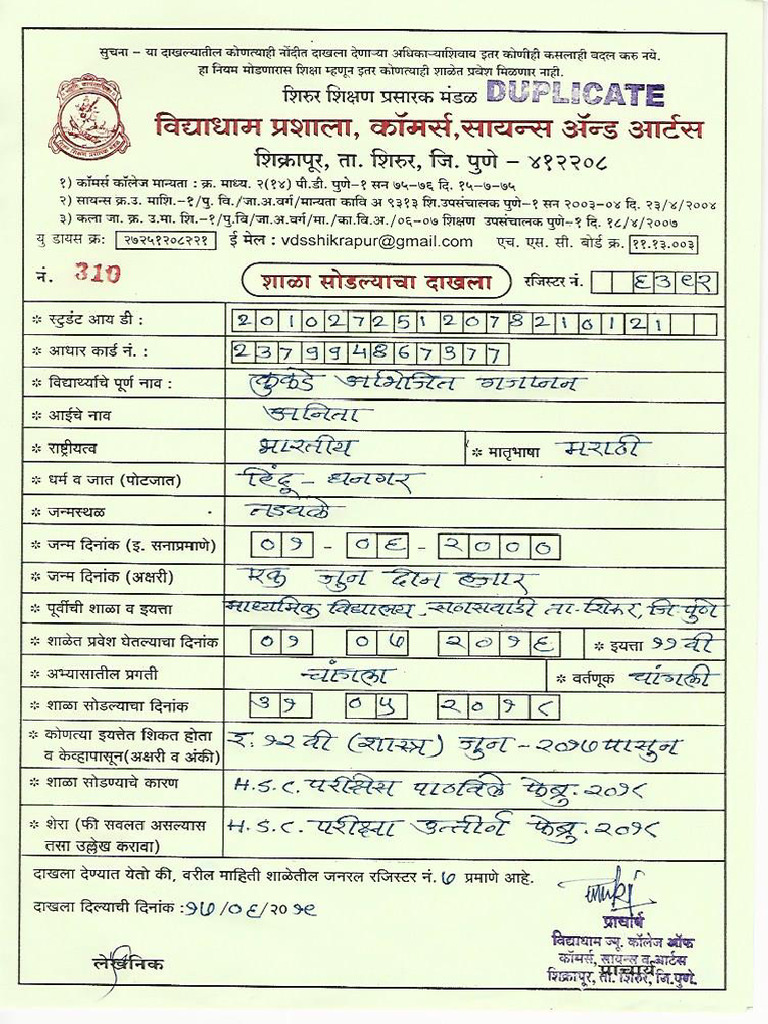 सुचना – या दाखल्यातील कोणत्याही नोंदीत दाखला देणाऱ्या अधिकाऱ्याशिवाय इतर कोणीही कसलाही बदल करु नये.
हा नियम मोडणारास शिक्षा म्हणून इतर कोणत्याही शाळेत प्रवेश मिळणार नाही.
शिरुर शिक्षण प्रसारक मंडळ DUPLICATE
विद्याधाम प्रशाला, कॉमर्स,सायन्स ॲन्ड आर्टस
शिक्रापूर, ता. शिरुर, जि. पुणे – ४१२२०८
१) कॉमर्स कॉलेज मान्यता : क्र. माध्य. २(१४) पी.डी. पुणे-१ सन ७५-७६ दि. १५-७-७५
२) सायन्स क्र.उ. माशि.-१/पु. वि./जा.अ.वर्ग/मान्यता कावि अ ९३१३ शि.उपसंचालक पुणे-१ सन २००३-०४ दि. २३/४/२००४
३) कला जा. क्र. उ.मा. शि.-१/पु.वि/जा.अ.वर्ग/मा./का.वि.अ./०६-०७ शिक्षण उपसंचालक पुणे-१ दि. १८/४/२००७
यु डायस क्र: २७२५१२०८२२१ ई मेल : vdsshikrapur@gmail.com एच. एस. सी. बोर्ड क्र. ११.१३.००३
नं. 310 शाळा सोडल्याचा दाखला रजिस्टर नं. ६३९२
* स्टुडंट आय डी : 2010272512078210121
* आधार कार्ड नं. : 237994867377
* विद्यार्थ्याचे पूर्ण नाव : कुकडे अभिजित गजानन
* आईचे नाव अनिता
* राष्ट्रीयत्व भारतीय * मातृभाषा मराठी
* धर्म व जात (पोटजात) हिंदू - धनगर
* जन्मस्थळ नडवळे
* जन्म दिनांक (इ. सनाप्रमाणे) ०१ - ०६ - २०००
* जन्म दिनांक (अक्षरी) एक जून दोन हजार
* पूर्वीची शाळा व इयत्ता माध्यमिक विद्यालय, सणसवाडी ता. शिरूर, जि. पुणे
* शाळेत प्रवेश घेतल्याचा दिनांक ०१ ०७ २०१६ * इयत्ता ११ वी
* अभ्यासातील प्रगती चांगला * वर्तणूक चांगली
* शाळा सोडल्याचा दिनांक ३१ ०५ २०१८
* कोणत्या इयत्तेत शिकत होता इ. १२ वी (शास्त्र) जून - २०१७ पासुन
व केव्हापासून(अक्षरी व अंकी)
* शाळा सोडण्याचे कारण H.S.C. परीक्षेस पाठविले फेब्रु. २०१८
* शेरा (फी सवलत असल्यास H.S.C. परीक्षा उत्तीर्ण फेब्रु. २०१८
तसा उल्लेख करावा)
दाखला देण्यात येतो की, वरील माहिती शाळेतील जनरल रजिस्टर नं. ७ प्रमाणे आहे.
दाखला दिल्याची दिनांक : १७/०६/२०१९
प्राचार्य
विद्याधाम ज्यू. कॉलेज ऑफ
कॉमर्स, सायन्स व आर्टस
लेखनिक प्राचार्य
शिक्रापूर, ता. शिरुर, जि.पुणे.